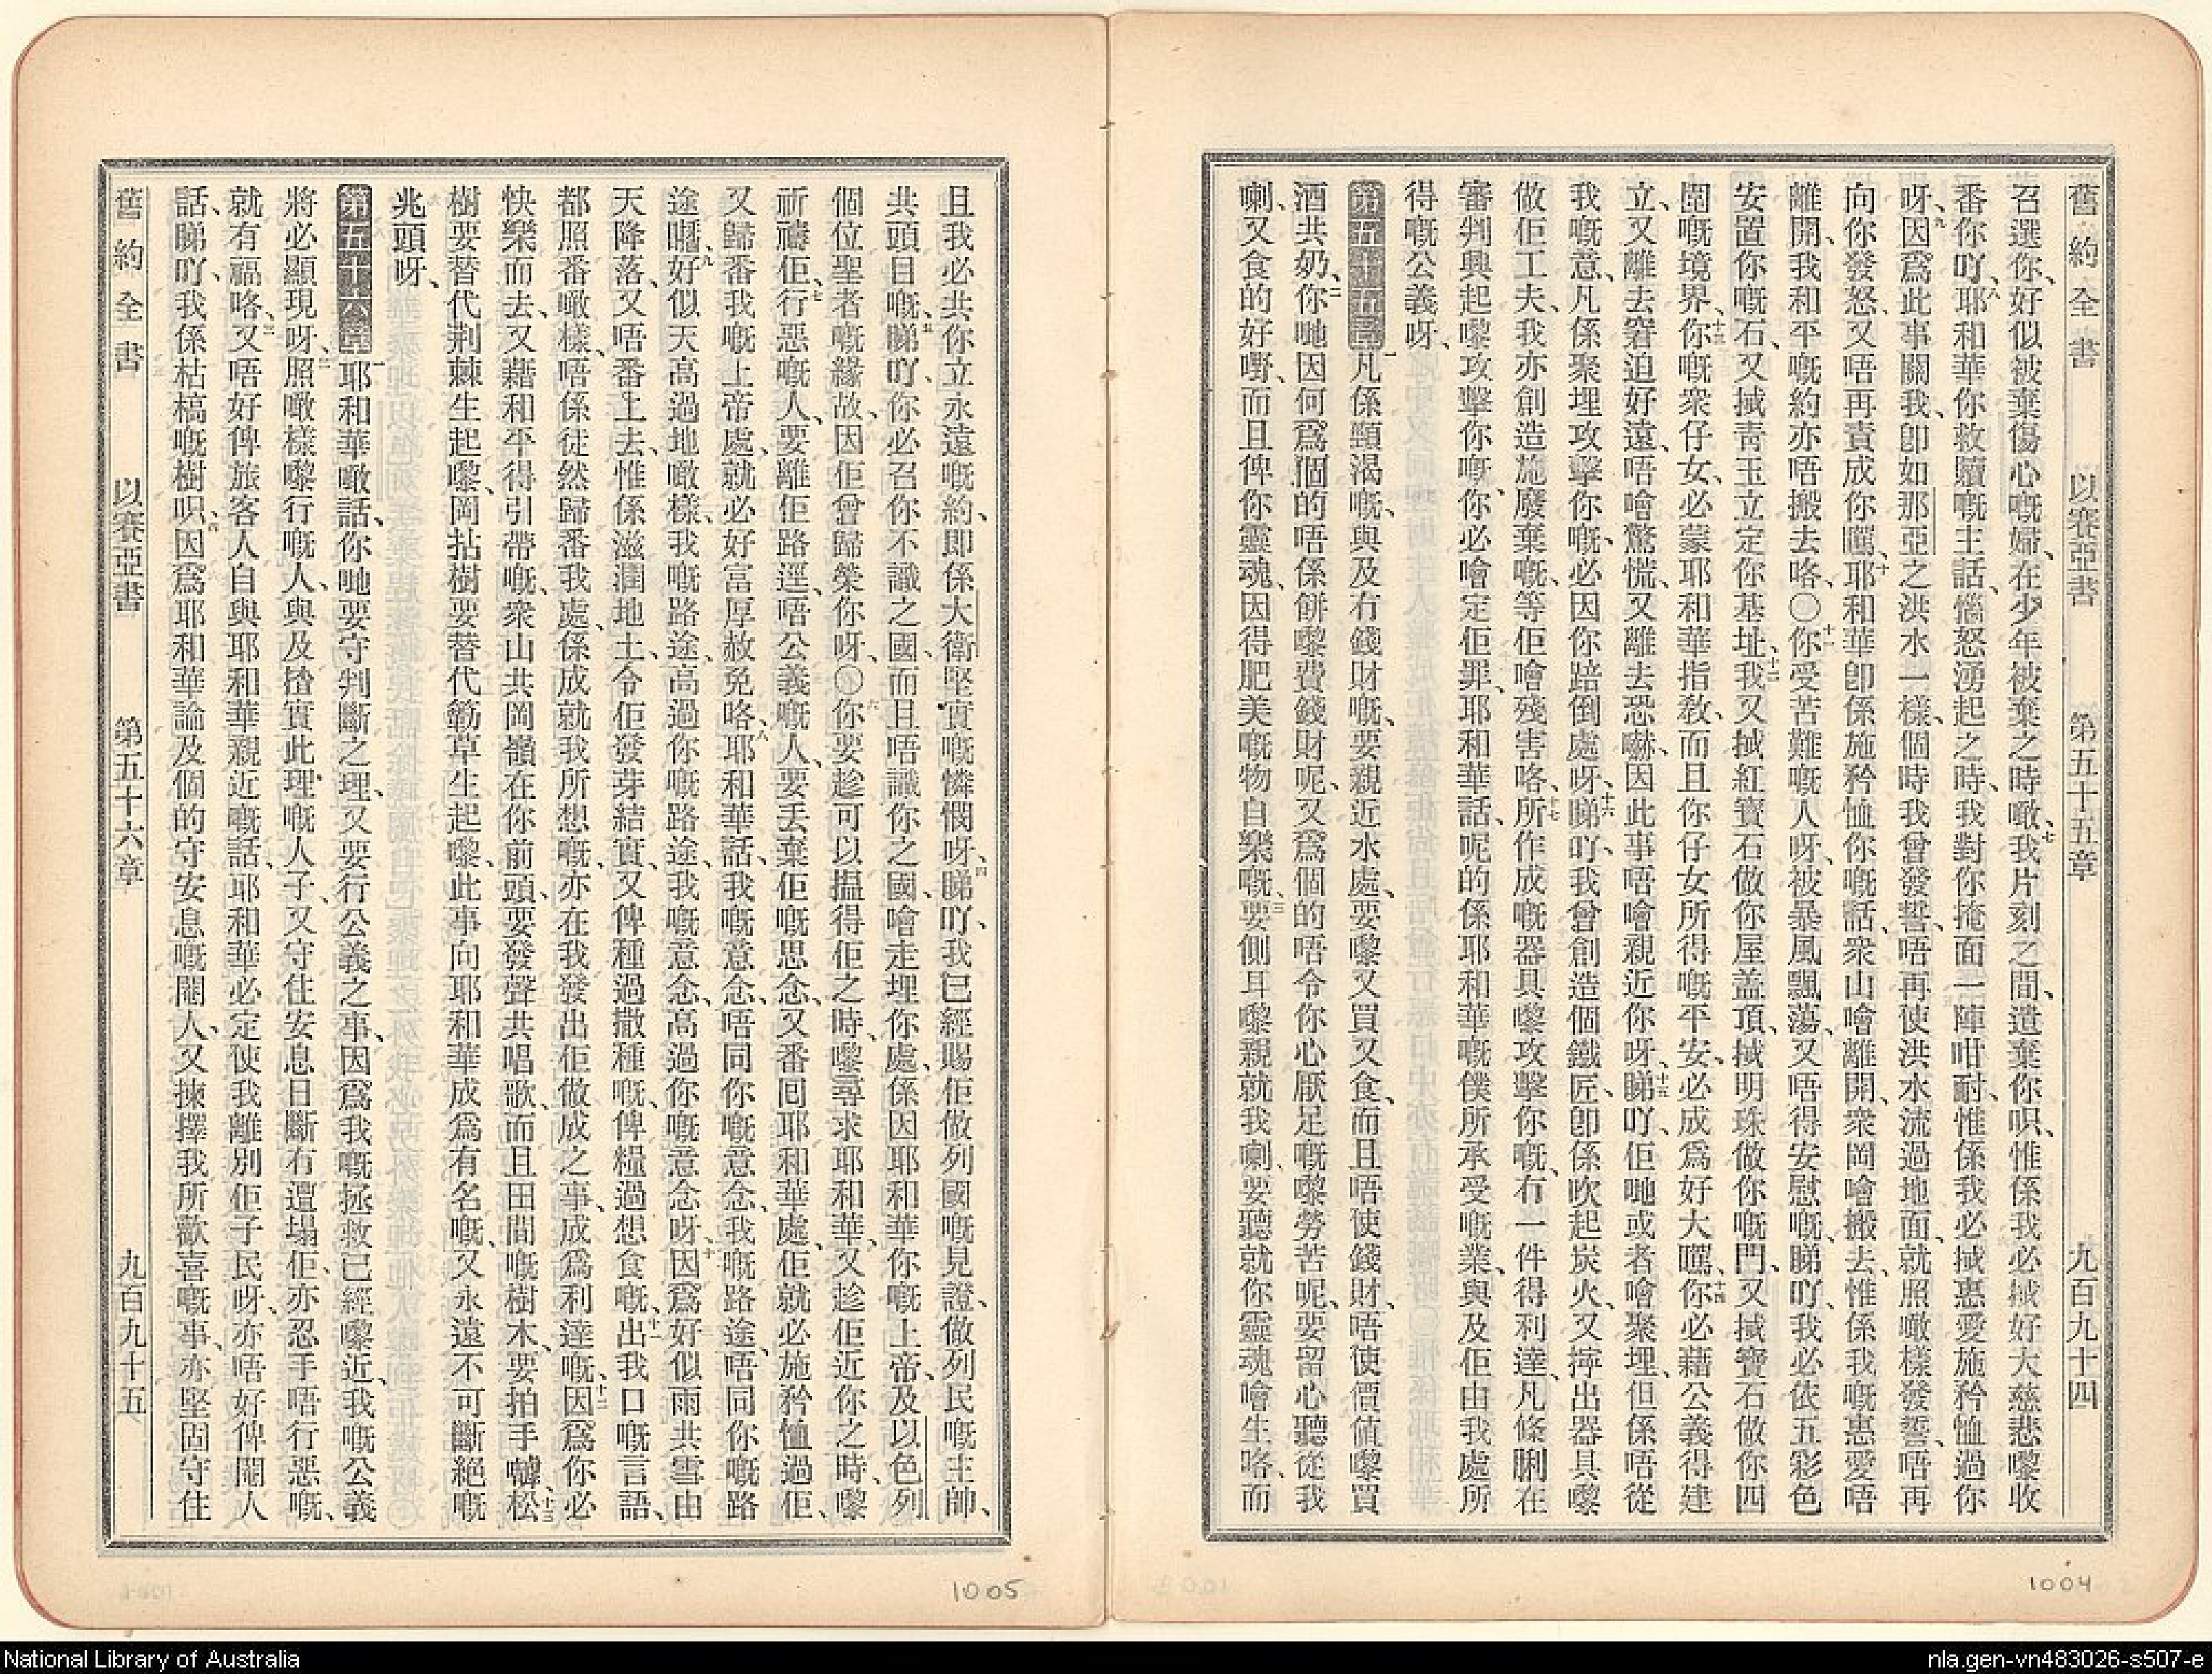 舊約全書 以賽亞書 第五十五章 九百九十四
召選你、好似被棄傷心嘅婦、在少年被棄之時噉、七我片刻之間、遺棄你唄、惟係我必㧜好大慈悲嚟收
番你吖、八耶和華你救贖嘅主話、惱怒湧起之時、我對你掩面一陣咁耐、惟係我必㧜惠愛施矜恤過你
呀、九因爲此事關我、卽如那亞之洪水一樣、個時我曾發誓、唔再使洪水流過地面、就照噉樣發誓、唔再
向你發怒、又唔再責成你囉、十耶和華卽係施矜恤你嘅話、衆山噲離開、衆岡噲搬去、惟係我嘅惠愛唔
離開、我和平嘅約亦唔搬去咯、〇十一你受苦難嘅人呀、被暴風飄蕩、又唔得安慰嘅、睇吖、我必依五彩色
安置你嘅石、又㧜靑玉立定你基址、十二我又㧜紅寶石做你屋盖頂、㧜明珠做你嘅門、又㧜寶石做你四
圍嘅境界、十三你嘅衆仔女、必蒙耶和華指敎、而且你仔女所得嘅平安、必成爲好大囉、十四你必藉公義得建
立、又離去窘迫好遠、唔噲驚慌、又離去恐嚇、因此事唔噲親近你呀、十五睇吖、佢哋或者噲聚埋、但係唔從
我嘅意、凡係聚埋攻擊你嘅、必因你踣倒處呀、十六睇吖、我曾創造個鐵匠、卽係吹起炭火、又擰出器具嚟
做佢工夫、我亦創造施廢棄嘅、等佢噲殘害咯、十七所作成嘅器具嚟攻擊你嘅、冇一件得利達、凡條脷在
審判興起嚟攻擊你嘅、你必噲定佢罪、耶和華話、呢的係耶和華嘅僕所承受嘅業、與及佢由我處所
得嘅公義呀、
第五十五章 一凡係頸渴嘅、與及冇錢財嘅、要親近水處、要嚟又買又食、而且唔使錢財、唔使價値嚟買
酒共奶、二你哋因何爲個的唔係餅嚟費錢財呢、又爲個的唔令你心厭足嘅嚟勞苦呢、要留心聽從我
喇、又食的好嘢、而且俾你靈魂、因得肥美嘅物自樂嘅、三要側耳嚟親就我喇、要聽就你靈魂噲生咯、而
1004
且我必共你立永遠嘅約、卽係大衛堅實嘅憐憫呀、四睇吖、我已經賜佢做列國嘅見證、做列民嘅主帥、
共頭目嘅、五睇吖、你必召你不識之國、而且唔識你之國、噲走埋你處、係因耶和華你嘅上帝、及以色列
個位聖者嘅緣故、因佢曾歸榮你呀、〇六你要趁可以搵得佢之時、嚟尋求耶和華、又趁佢近你之時、嚟
祈禱佢、七行惡嘅人、要離佢路逕、唔公義嘅人、要丟棄佢嘅思念、又番囘耶和華處、佢就必施矜恤過佢、
又歸番我嘅上帝處、就必好富厚赦免咯、八耶和華話、我嘅意念、唔同你嘅意念、我嘅路途、唔同你嘅路
途囉、九好似天高過地噉樣、我嘅路途、高過你嘅路途、我嘅意念、高過你嘅意念呀、十因爲好似雨共雪由
天降落、又唔番上去、惟係滋潤地土、令佢發芽結實、又俾種過撒種嘅、俾糧過想食嘅、十一出我口嘅言語、
都照番噉樣、唔係徒然歸番我處、係成就我所想嘅、亦在我發出佢做成之事、成爲利達嘅、十二因爲你必
快樂而去、又藉和平得引帶嘅、衆山共岡嶺在你前頭、要發聲共唱歌、而且田間嘅樹木、要拍手嘅、十三松
樹要替代荆棘生起嚟、岡拈樹要替代簕草生起嚟、此事向耶和華成爲有名嘅、又永遠不可斷絕嘅
兆頭呀、
第五十六章 一耶和華噉話、你哋要守判斷之理、又要行公義之事、因爲我嘅拯救已經嚟近、我嘅公義
將必顯現呀、二照噉樣嚟行嘅人、與及揸實此理嘅人子、又守住安息日斷冇遭塌佢、亦忍手唔行惡嘅、
就有福咯、三又唔好俾旅客人自與耶和華親近嘅話、耶和華必定使我離別佢子民呀、亦唔好俾閹人
話、睇吖、我係枯槁嘅樹唄、四因爲耶和華論及個的守安息嘅閹人、又揀擇我所歡喜嘅事、亦堅固守住
舊約全書 以賽亞書 第五十六章 九百九十五
1005
National Library of Australia
nla.gen-vn483026-s507-e